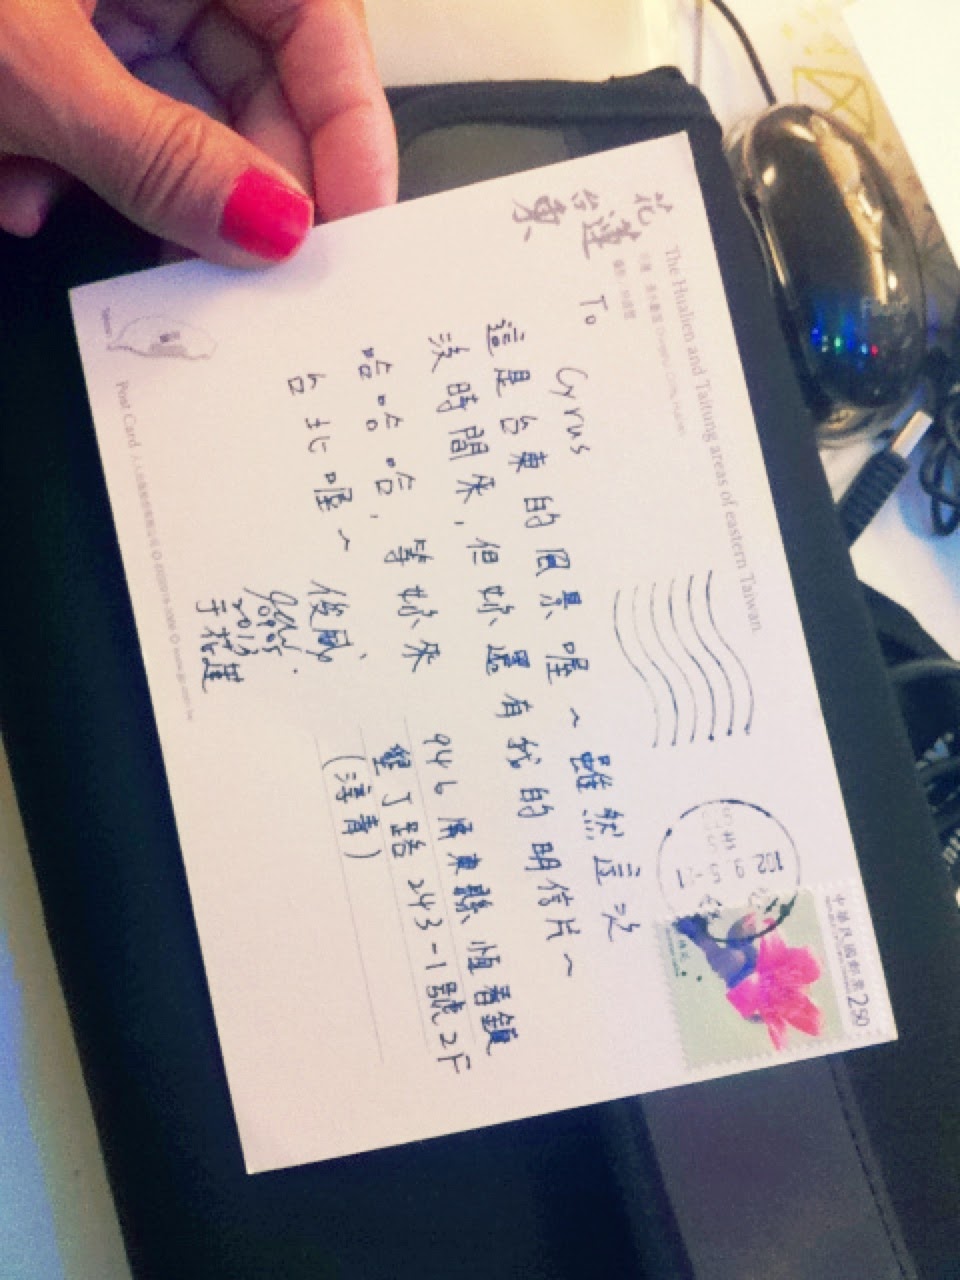 花蓮
台東
The Hualien and Taitung areas of eastern Taiwan
To Cyrus
這是台東的風景喔~雖然這次
沒時間來,但妳還有我的明信片~
哈哈哈,等妳來
台北喔~
俊威、
2013
于花蓮
946 屏東縣恆春鎮
墾丁路243-1號2F
(淳青)
中華民國郵票
250
102
Taiwan
Post Card